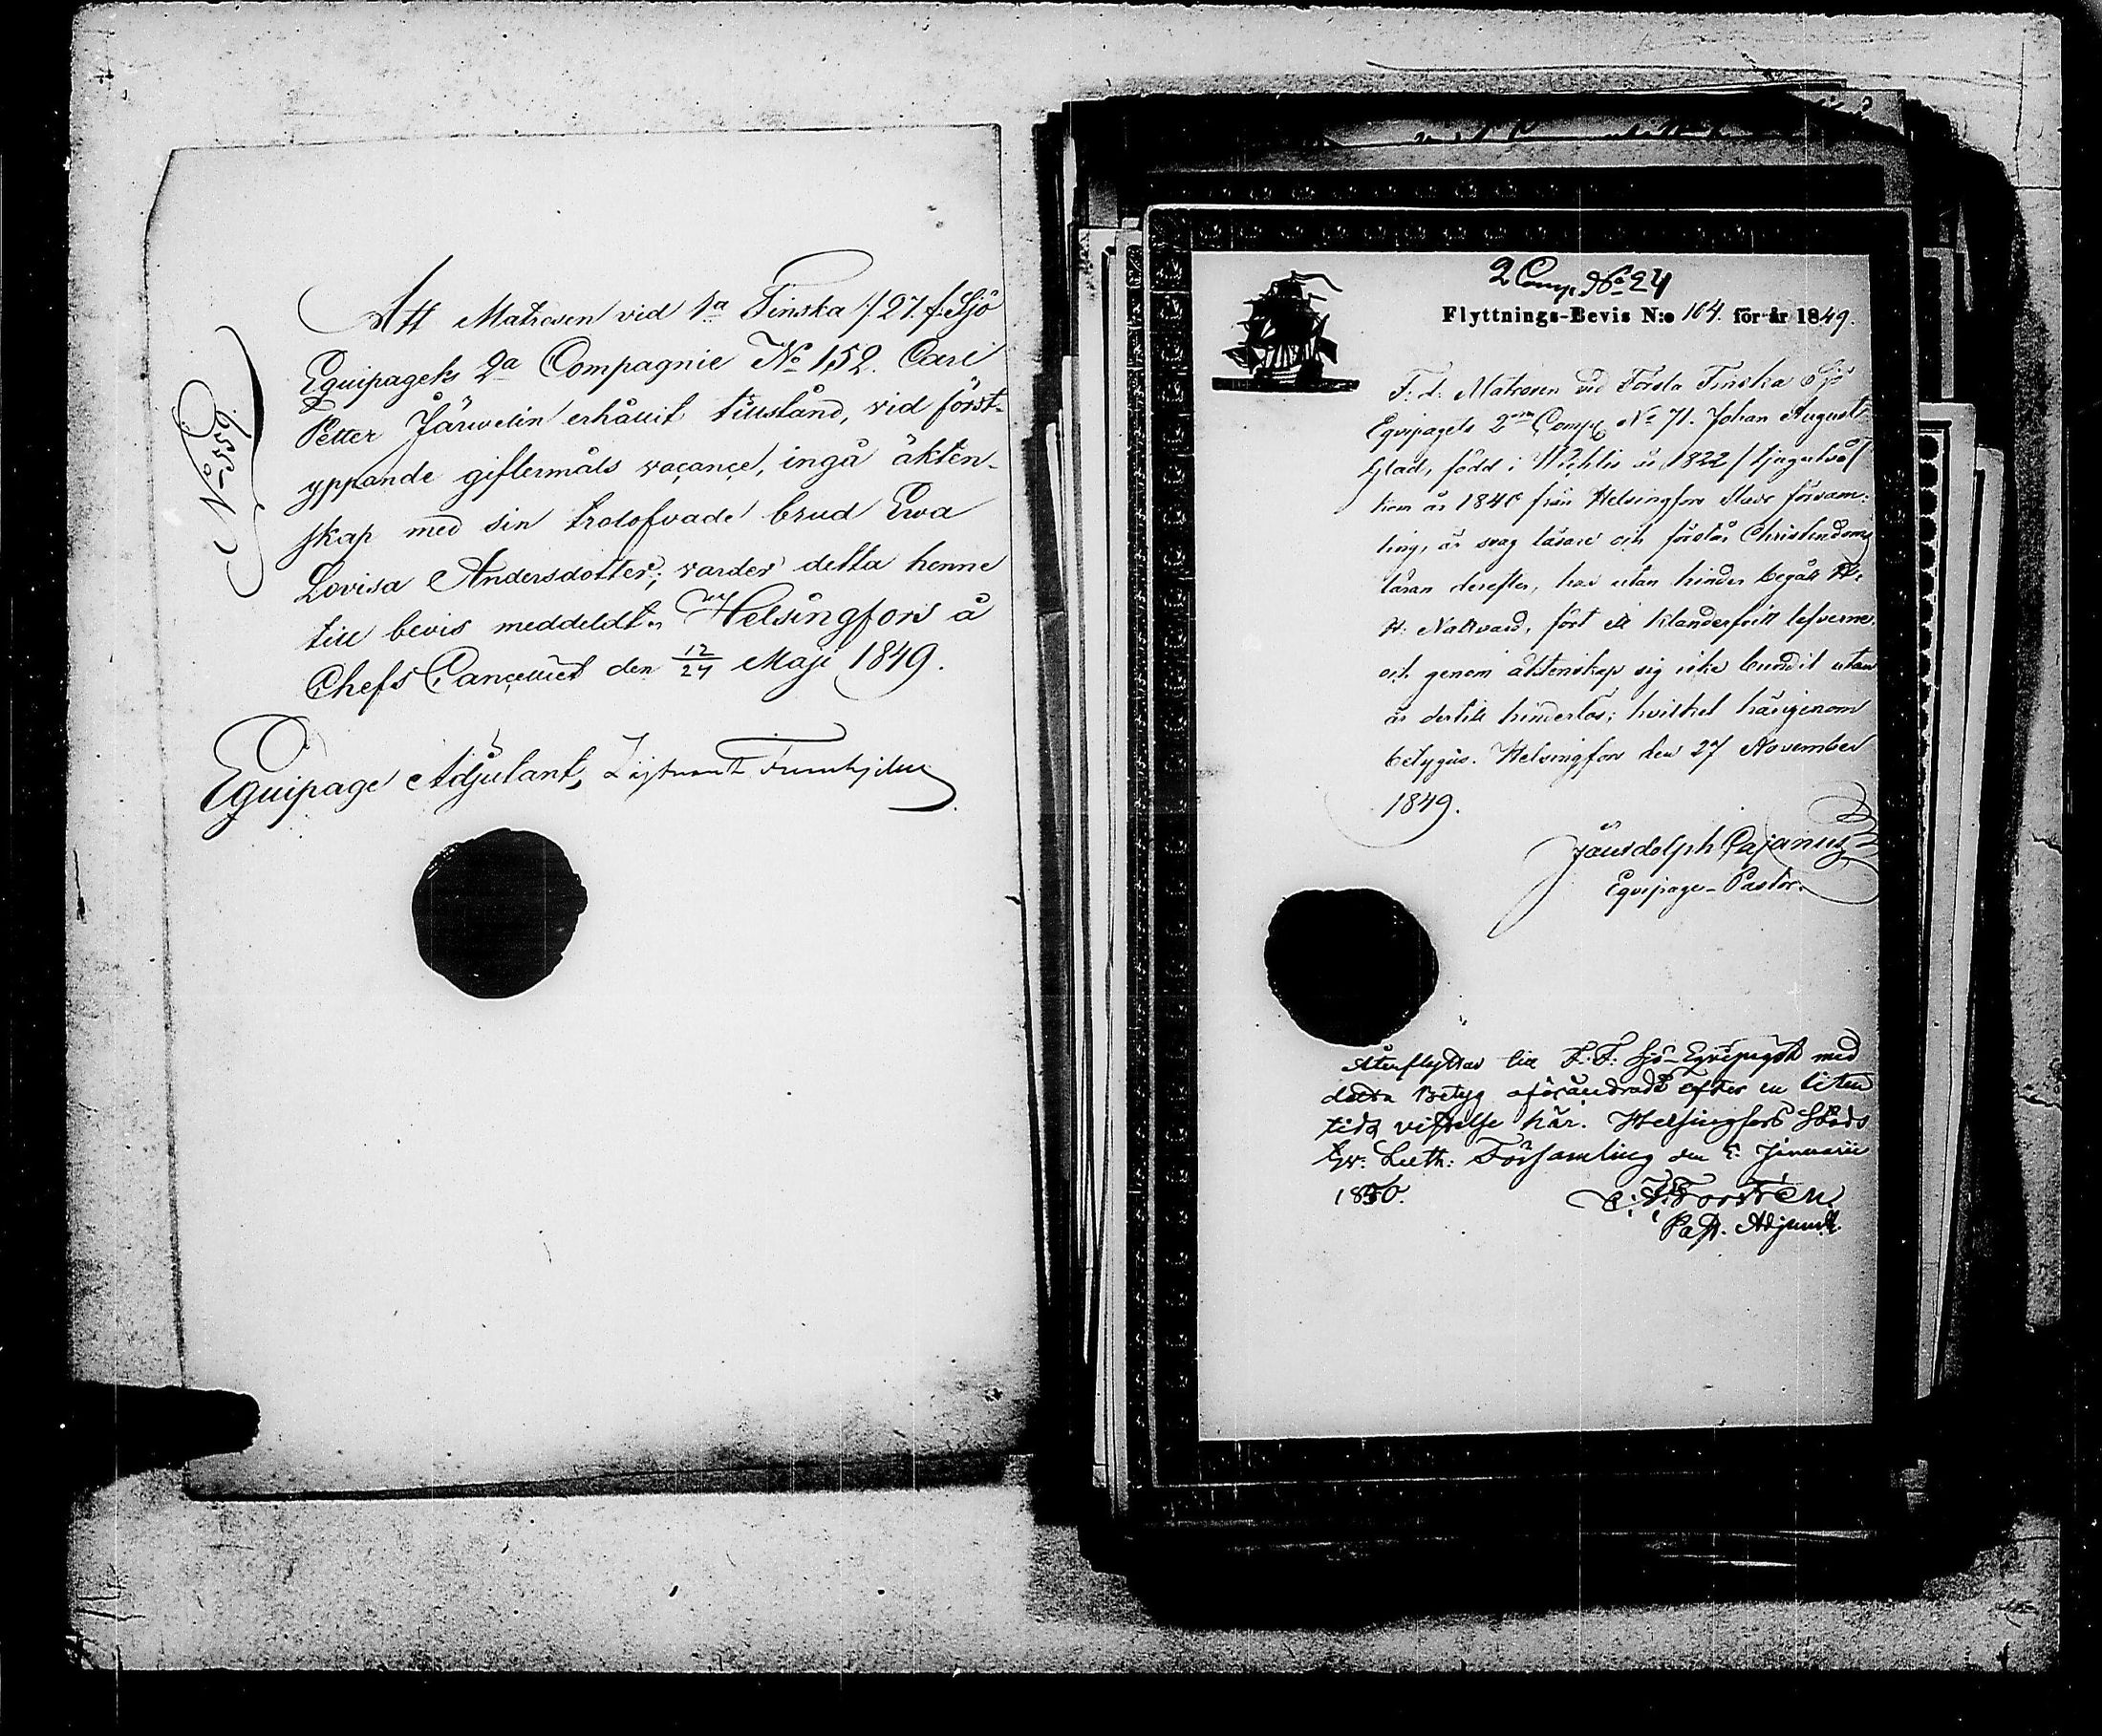 No 559.
Att Matrosen vid 1a Finska /:27.f. Sjö
Equipagets 2a Compagnie No 152. Carl
Petter Järvelin erhållit tillstånd, vid först-
yppande giftermåls vacance, ingå äkten-
skap med sin trolofvade brud Ewa
Lovisa Andersdotter; varder detta henne
till bevis meddeldt. Helsingfors å
Chefs Cancelliet den 12/24 Maji 1849.
Equipage Adjutant, Löjtnant
2 Comp. No 24
Flyttnings-Bevis N:o 104. för år 1849.
F: d: Matrosen vid Första Finska Sjö
Eqvipagets 2dra Comp. No 71. Johan August
Glad, född i Wichtis år 1822
kom år 184 från Helsingfors Stads försam-
ling, är svag läsare och förstår Christendoms
läran derefter, har utan hinder begått H.
H. Nattvard, fört ett klanderfritt lefverne
och genom äktenskap sig icke bundit utan
är dertill hinderlös; hvilket härigenom
betygas. Helsingfors den 27 November
1849.
Cajanus
Eqvipage-Pastor.
Återflyttar till F. F. Sjö-Eqvipaget med
detta Betyg oförändradt efter en liten
tids vistelse här. Helsingfors Stads
Ev. Luth: Församling den 5 Januarii
1850.
C. F. Forstrén
Past. Adjunkt.